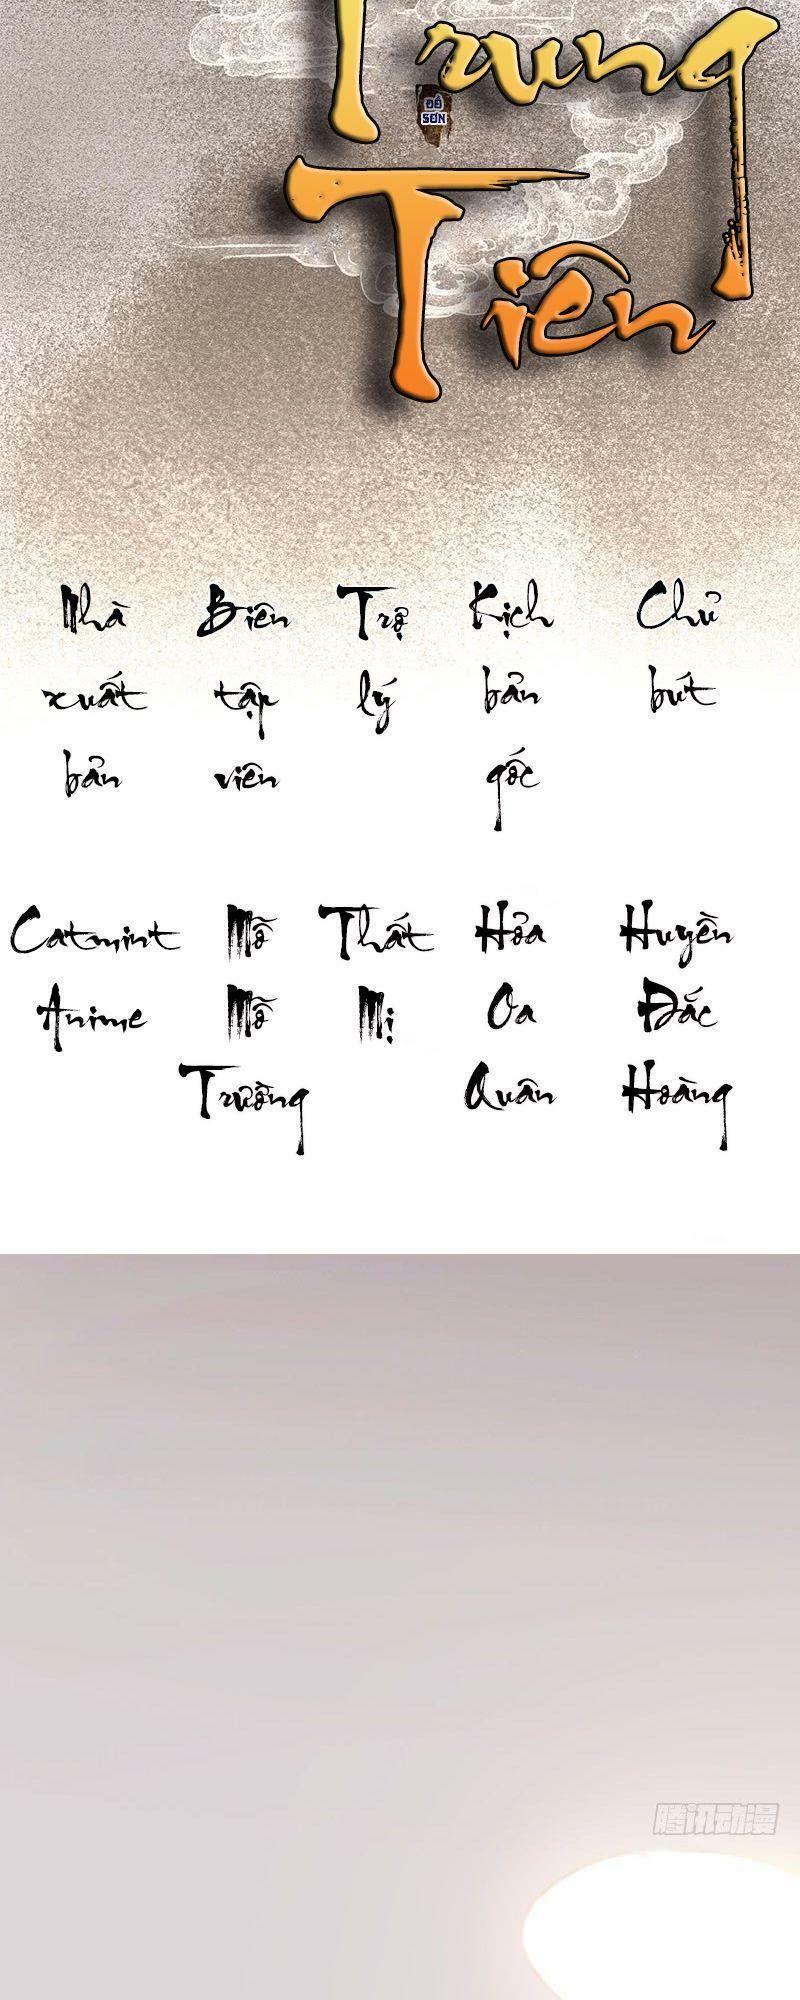 Trung
ĐỀ
SƠN
Tiên
Nhà Biên Trợ Kịch Chủ
xuất tập lý bản bút
bản viên gốc
Catmint Mỗ Thất Hỏa Huyền
Anime Mỗ Mị Oa Đắc
Trường Quân Hoàng
腾讯动漫